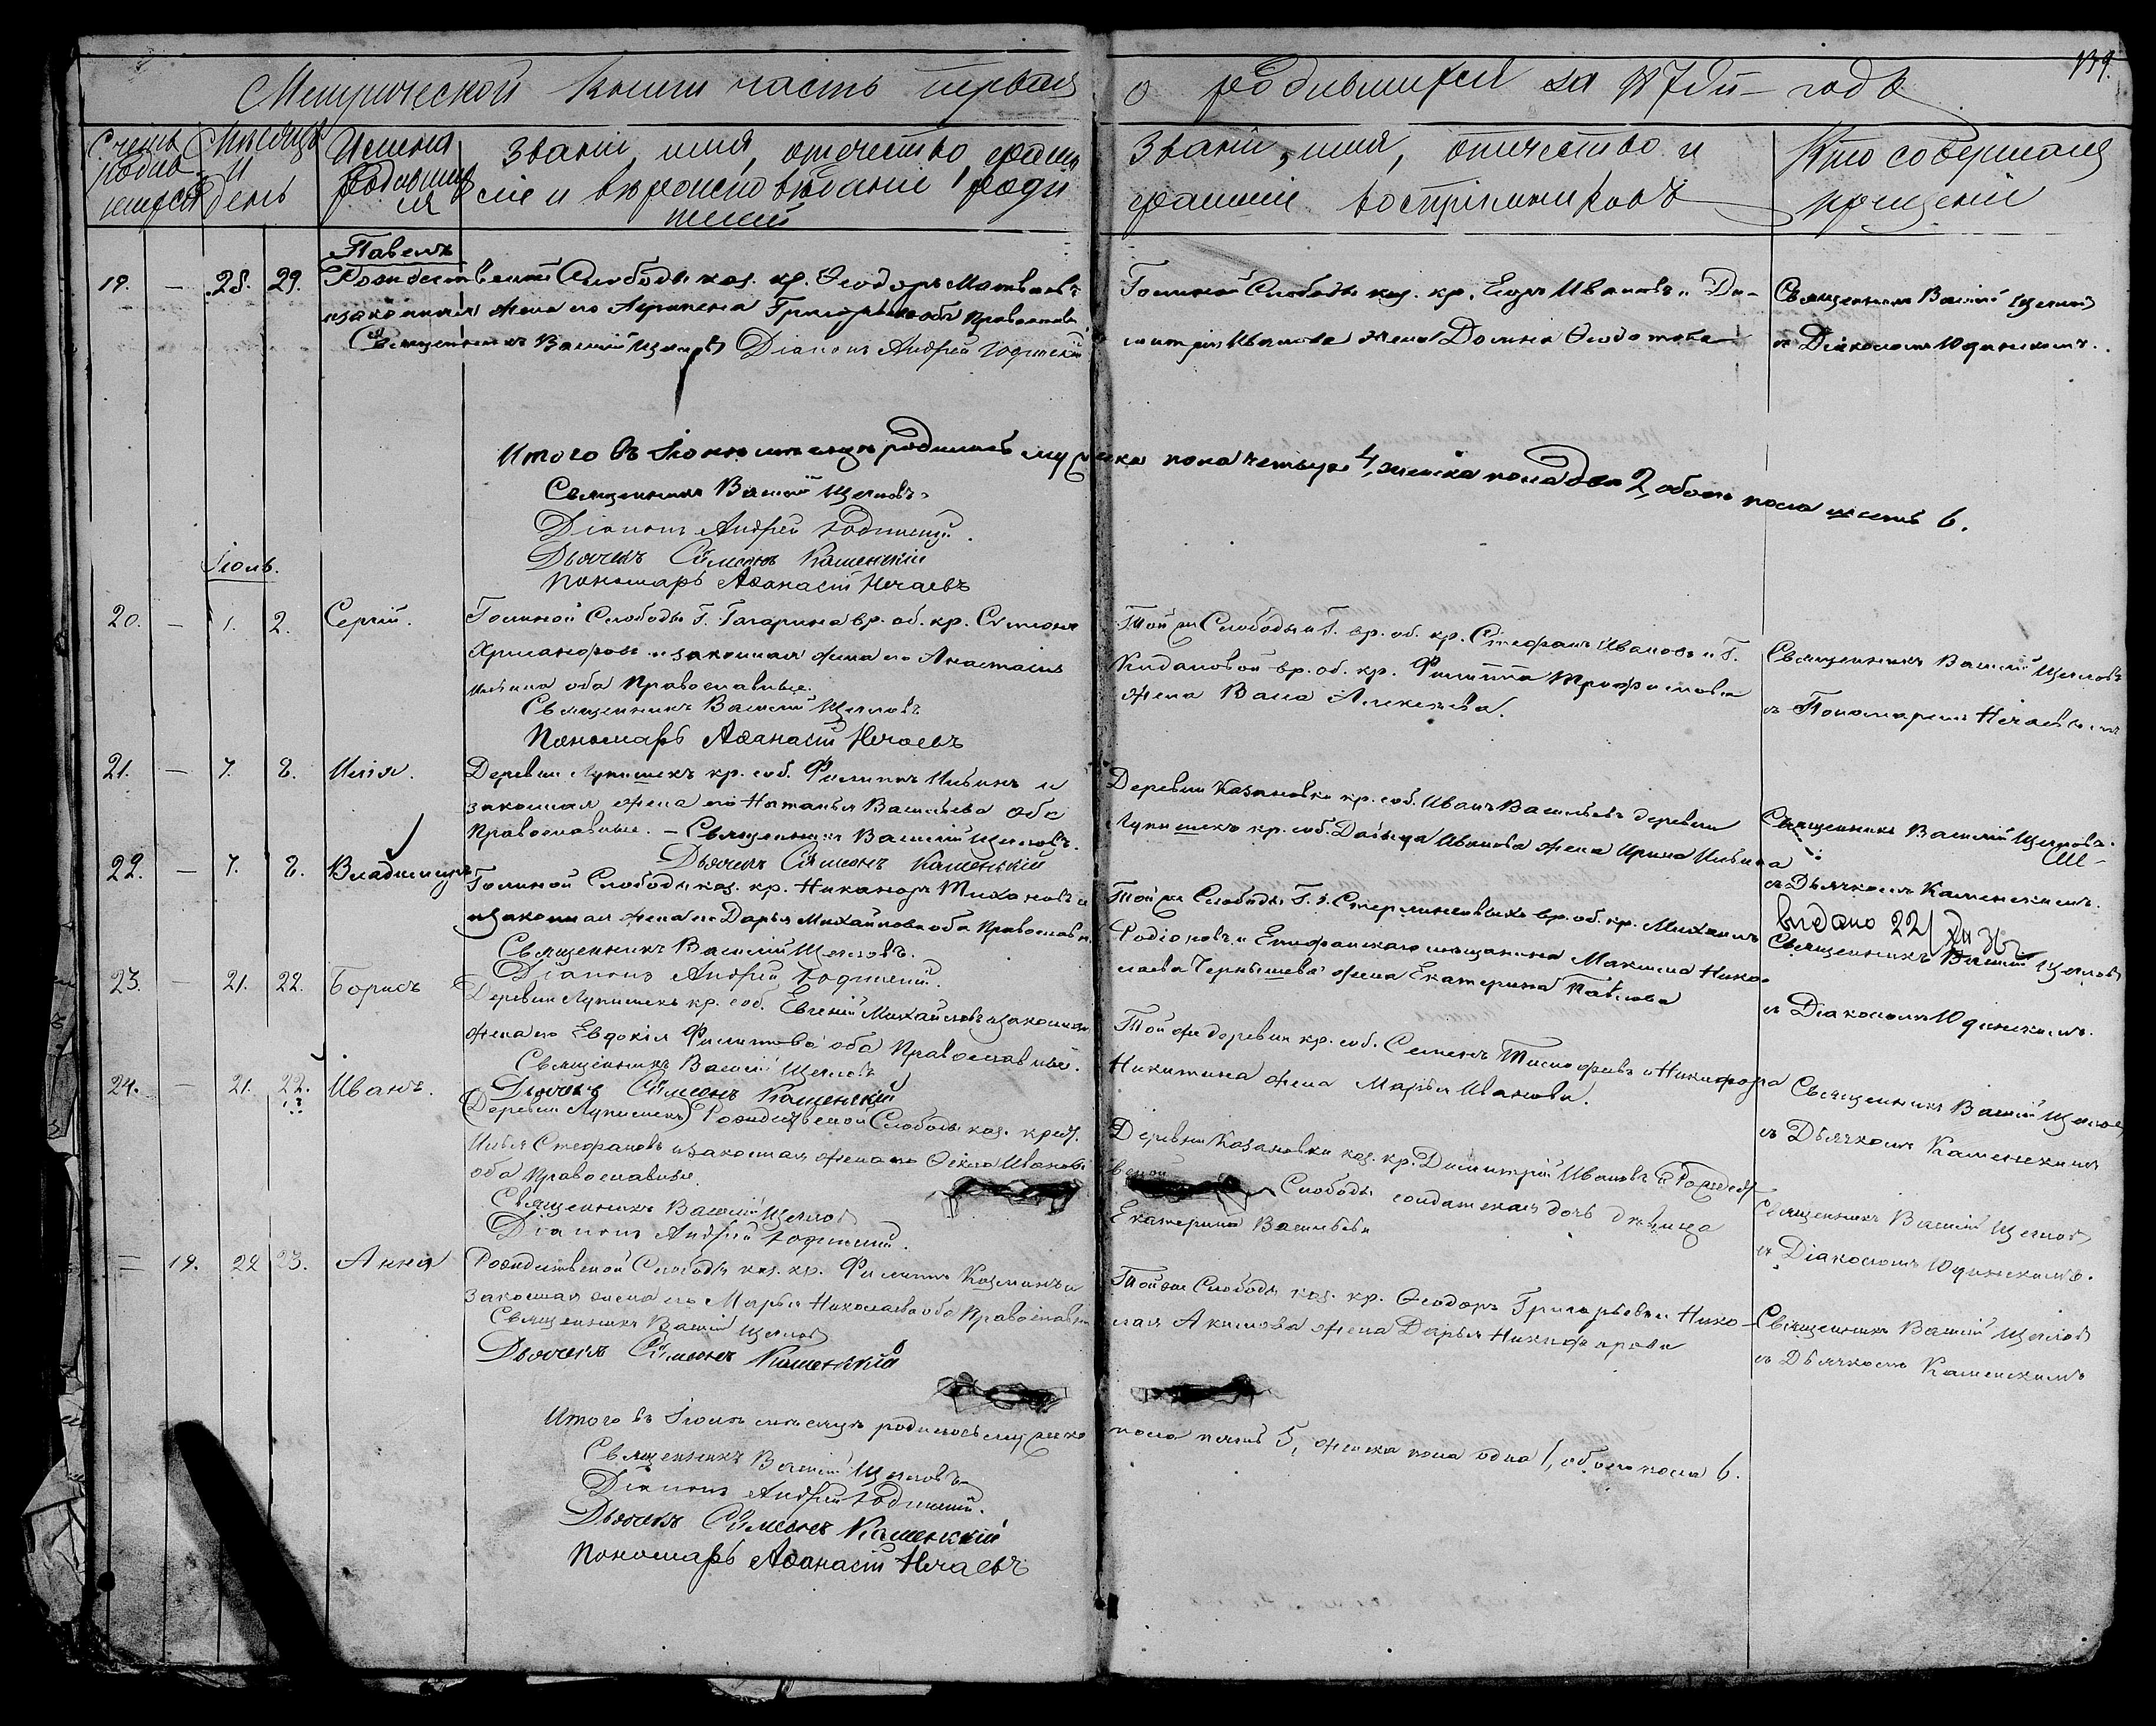 139.
Метрической книги часть первая о родившихся за 187 годъ
Счетъ родившихся
Мѣсяцъ и день
Имена родившихся
Званіе, имя, отчество, фамилія и вѣроисповѣданіе родителей
Званіе, имя, отчество и фамилія воспріемниковъ
Кто совершалъ крещеніе
19. — 28. 29. Павелъ
Рождественской Слободы каз. кр. Ѳеодоръ Матвѣевъ
и законная жена его Агрипена Григорьева оба Православн.
Священникъ Василій Щегловъ Діаконъ Андрей
Голиной Слободы каз. кр. Егоръ Ивановъ и Ди-
митрія Иванова жена Домна Ѳеодотова
Священникъ Василій Щегловъ
съ Діакономъ Юдинскимъ.
Итого въ Іюнѣ мѣсяцѣ родилось мужска пола четыре 4, женска пола два 2, обоего пола шесть 6.
Священникъ Василій Щегловъ.
Діаконъ Андрей
Дьячекъ Сѵмеонъ Каменскій
Пономарь Аѳанасій Нечаевъ
Іюль.
20. — 1. 2. Сергій.
Голиной Слободы Г. Гагарина вр. об. кр. Сѵмеонъ
и законная жена его Анастасія
Ильина оба Православные.
Священникъ Василій Щегловъ
Пономарь Аѳанасій Нечаевъ
Той же Слободы и Г. вр. об. кр. Стефанъ Ивановъ и Г.
Кидановой вр. об. кр. Филиппа Трофимова
жена Васса Алексѣева.
Священникъ Василій Щегловъ
съ Пономаремъ Нечаевымъ
21. — 7. 8. Илія.
Деревни Лупишекъ кр. соб. Филиппъ Ильинъ и
законная жена его Наталья Васильева оба
Православные. — Священникъ Василій Щегловъ.
Дьячекъ Сѵмеонъ Каменскій
Деревни Казановки кр. соб. Иванъ Васильевъ деревни
Лупишекъ кр. соб. Давыда Иванова жена Ирина Ильина
Священникъ Василій Щегловъ.
съ Дьячкомъ Каменскимъ.
22. — 7. 8. Владиміръ
Голиной Слободы каз. кр. Никаноръ Тихоновъ и
законная жена его Дарья Михайлова оба Православн.
Священникъ Василій Щегловъ.
Діаконъ Андрей
Той же Слободы Г. г. вр. об. кр. Михаилъ
Родіоновъ и Епифанскаго мѣщанина Максима Нико-
лаева Чернышева жена Екатерина Павлова
выдано 22/XII
Священникъ Василій Щегловъ
съ Діакономъ Юдинскимъ.
23. — 21. 22. Борисъ
Деревни Лупишекъ кр. соб. Евгеній Михайловъ и законная
жена его Евдокія Филиппова оба Православные.
Священникъ Василій Щегловъ
Дьячекъ Сѵмеонъ Каменскій
Той же деревни кр. соб. Семенъ Тимофѣевъ и Никифора
Никитина жена Марья Иванова.
Священникъ Василій Щегловъ
съ Дьячкомъ Каменскимъ
24. — 21. 22. Иванъ.
(Деревни Лупишекъ) Рождественской Слободы каз. крест.
Илья Стефановъ и законная жена его Ѳекла Иванова
оба Православные.
Священникъ Василій Щегловъ
Діаконъ Андрей
Деревни Казановки каз. кр. Димитрій Ивановъ и Рождест-
венской Слободы солдатская дочь дѣвица
Екатерина Васильева
Священникъ Василій Щегловъ
съ Діакономъ Юдинскимъ.
— 19. 22 23. Анна
Рождественской Слободы каз. кр. Филиппъ Козминъ и
законная жена его Марья Николаева оба Православн.
Священникъ Василій Щегловъ
Дьячекъ Сѵмеонъ Каменскій
Той же Слободы каз. кр. Ѳеодоръ Григорьевъ и Нико-
лая Акимова жена Дарья Никифорова
Священникъ Василій Щегловъ
съ Дьячкомъ Каменскимъ
Итого въ Іюлѣ мѣсяцѣ родилось мужска пола пять 5, женска пола одна 1, обоего пола 6.
Священникъ Василій Щегловъ
Діаконъ Андрей
Дьячекъ Сѵмеонъ Каменскій
Пономарь Аѳанасій Нечаевъ